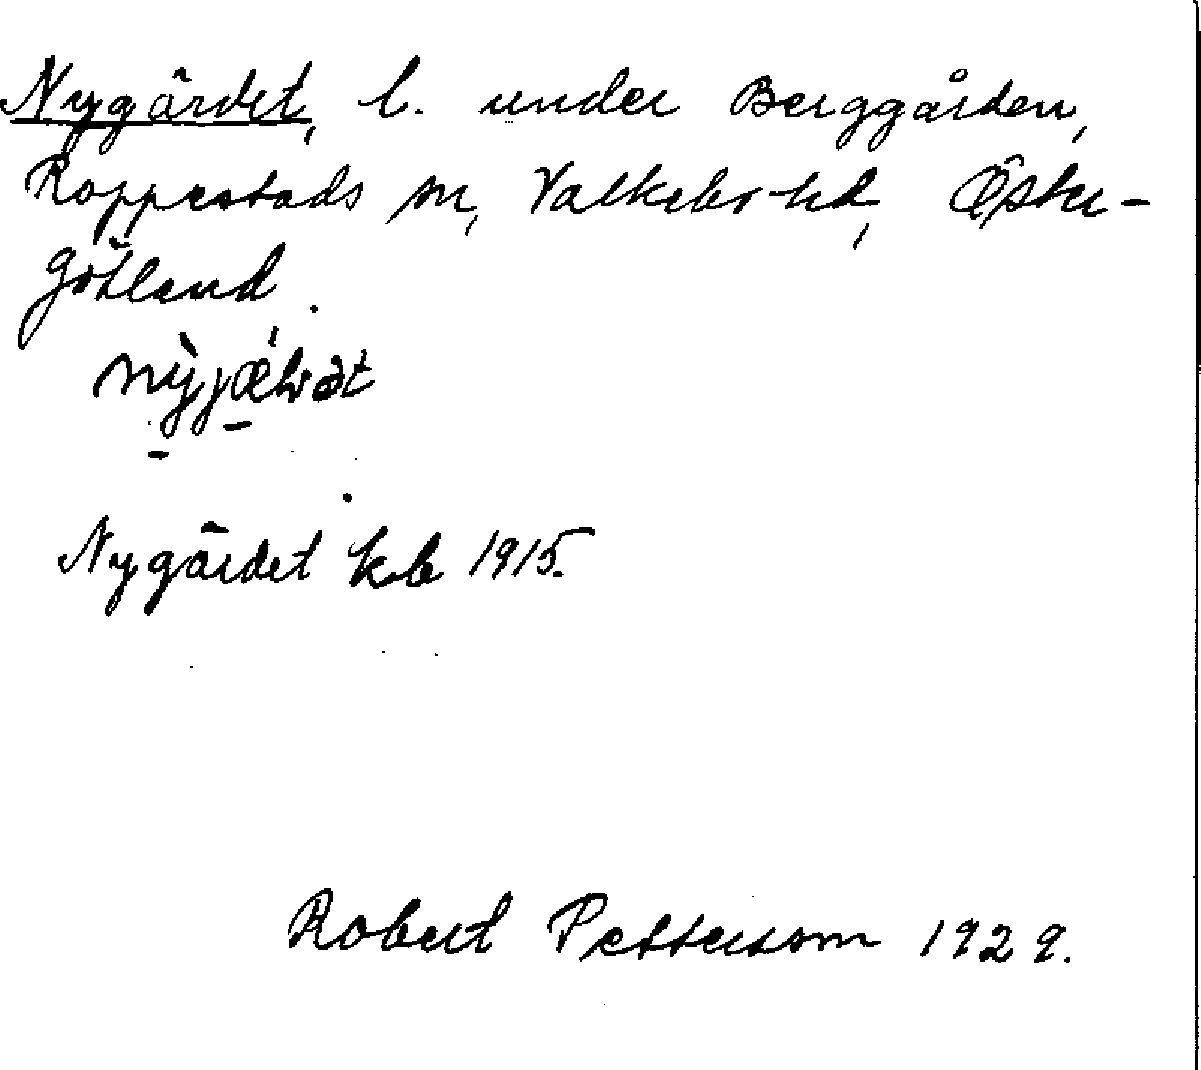 Nygärdet, l. under Berggården,
Rappestads sn, Valkebo hd, Öster-
götland.
Nygärdet kb 1915.
Robert Pettersson 1929.